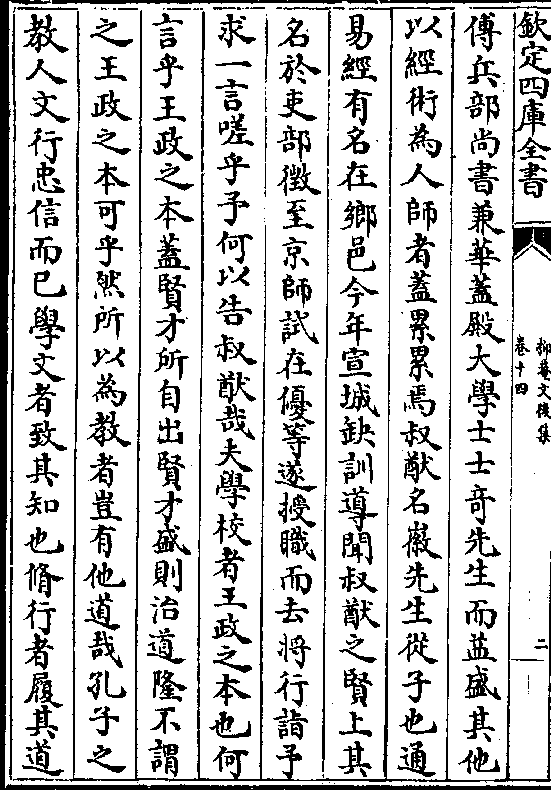 欽定四庫全書
抑菴文後集
卷十四
二
傅兵部尚書兼華蓋殿大學士士竒先生而益盛其他
以經術為人師者蓋累累焉叔猷名徽先生從子也通
易經有名在鄉邑今年宣城缺訓導聞叔猷之賢上其
名於吏部徴至京師試在優等遂授職而去將行詣予
求一言嗟乎予何以告叔猷哉夫學校者王政之本也何
言乎王政之本蓋賢才所自出賢才盛則治道隆不謂
之王政之本可乎然所以為教者豈有他道哉孔子之
教人文行忠信而已學文者致其知也脩行者履其道